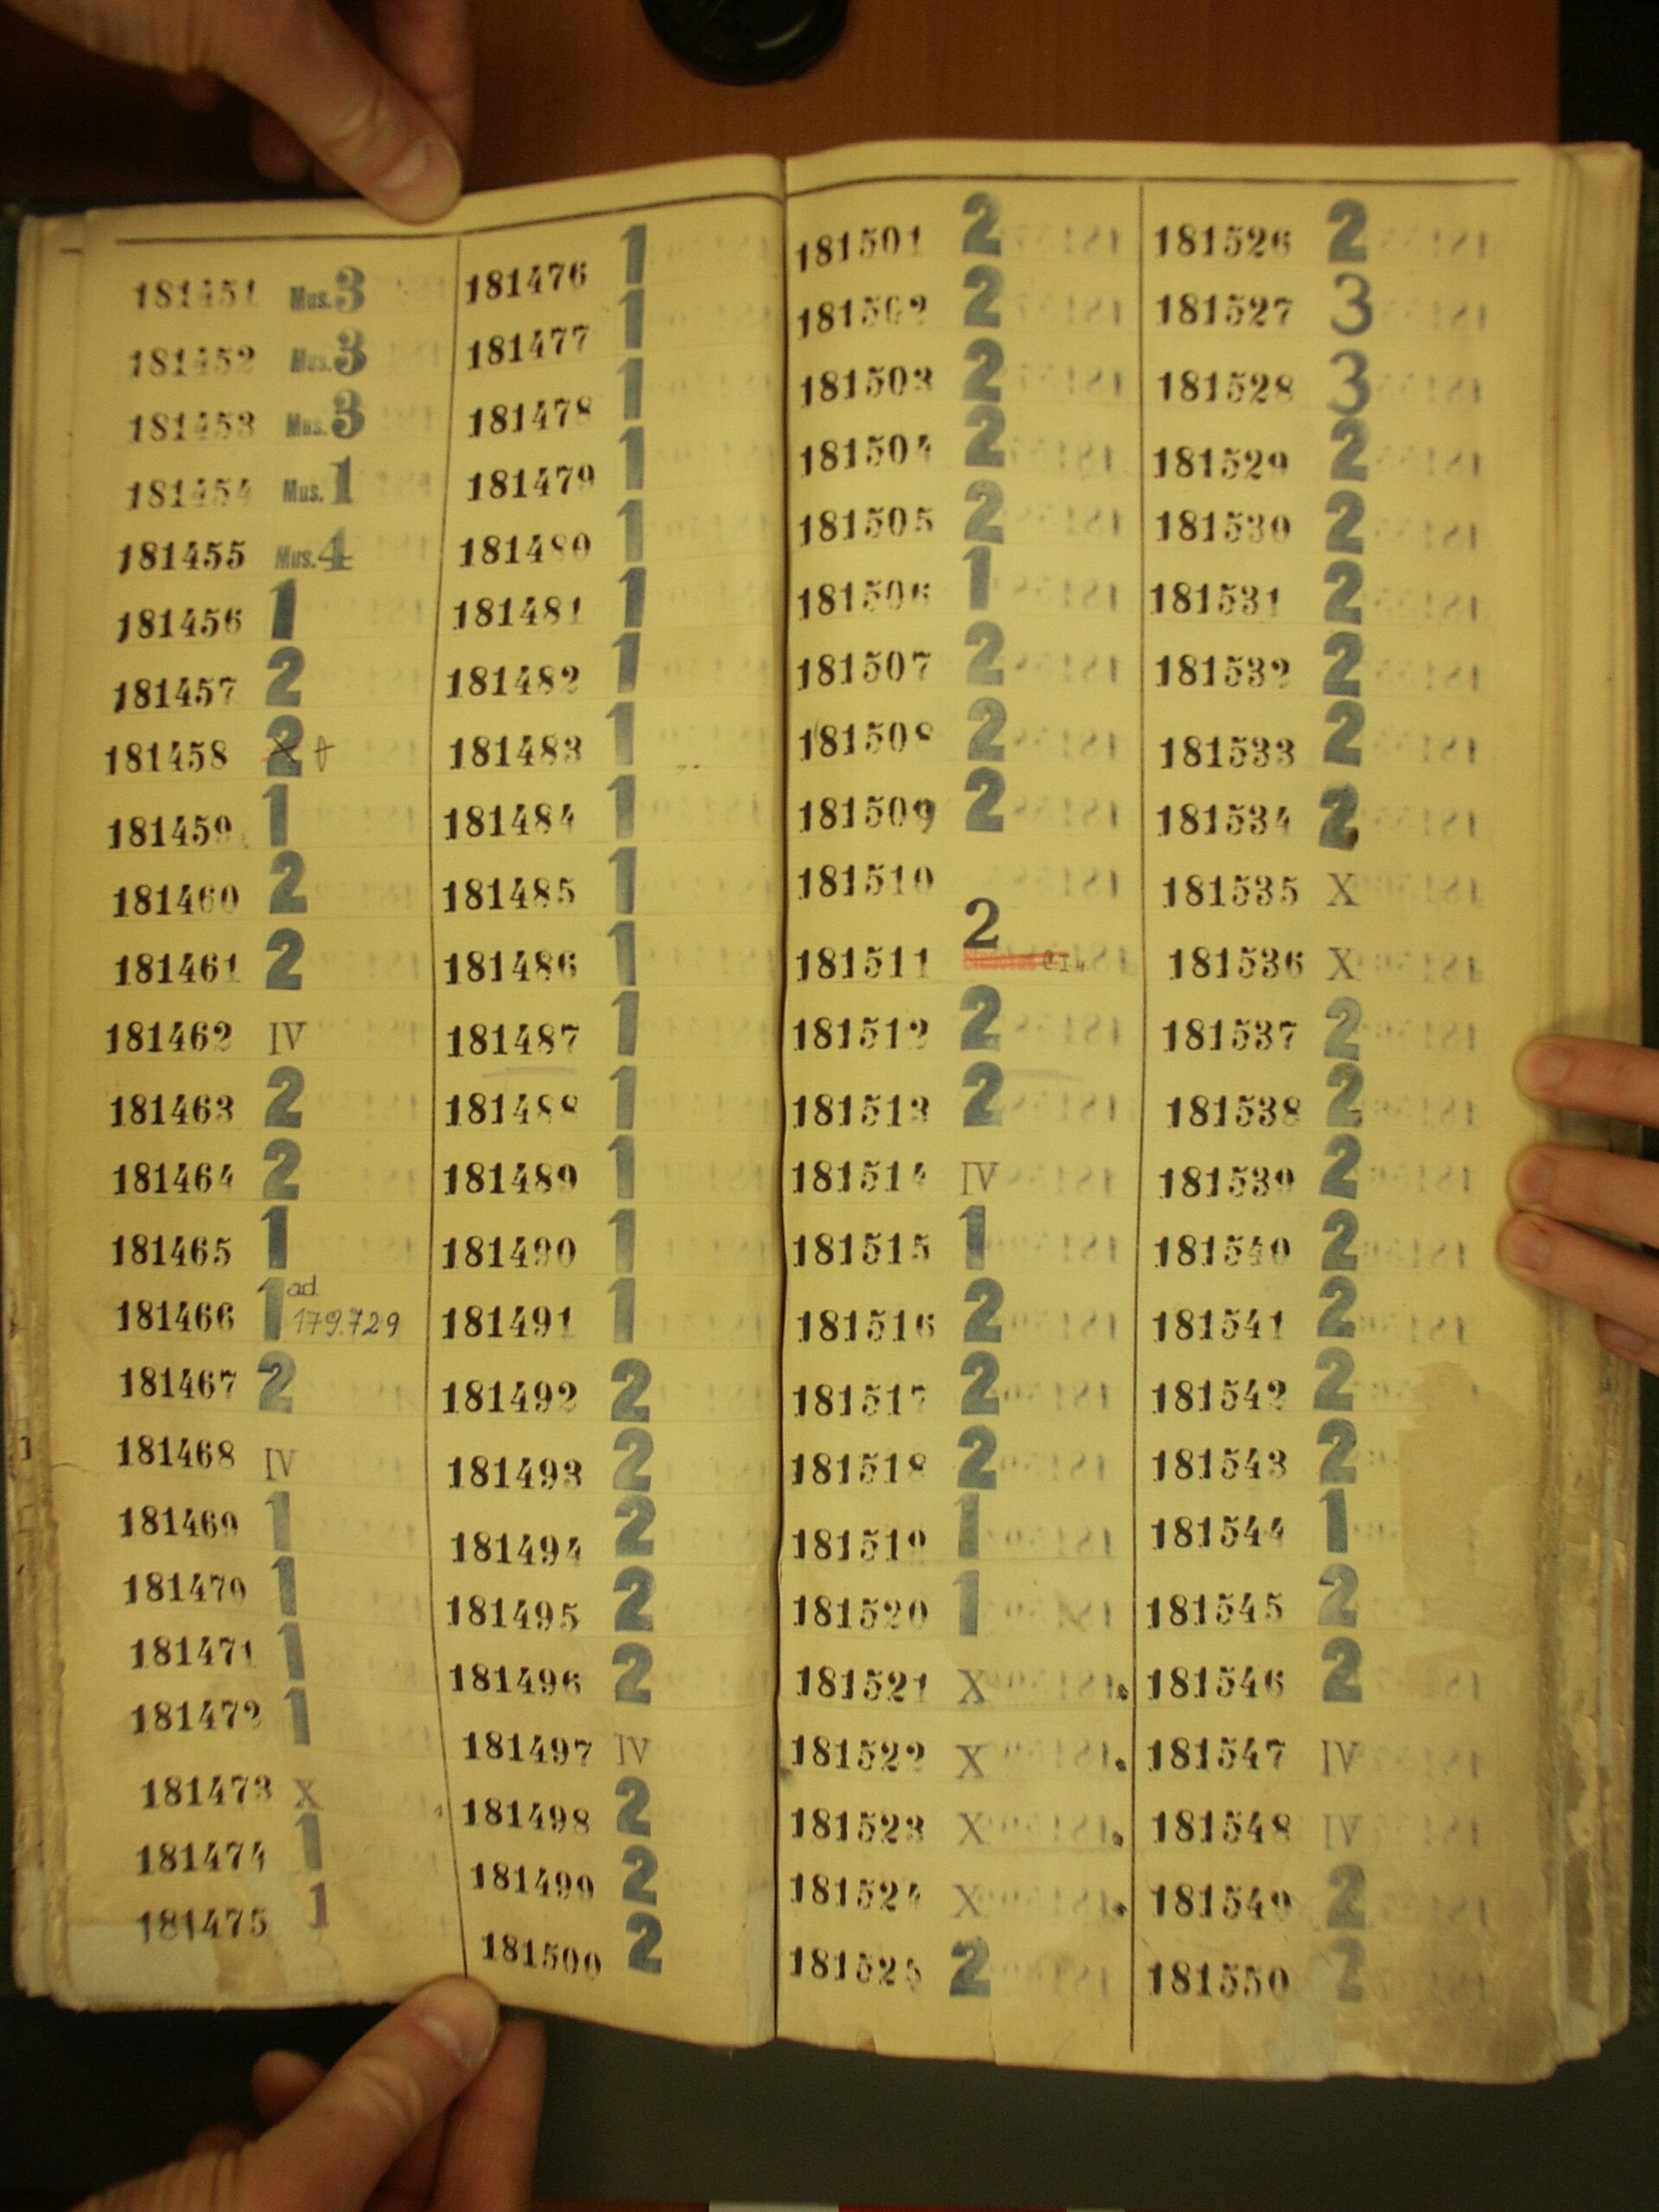 181451 Mus. 3
181452 Mus. 3
181453 Mus. 3
181454 Mus. 1
181455 Mus. 4
181456 1
181457 2
181458 2
181459 1
181460 2
181461 2
181462 IV
181463 2
181464 2
181465 1
181466 1 ad 179.729
181467 2
181468 IV
181469 1
181470 1
181471 1
181472 1
181473 X
181474 1
181475 1
181476 1
181477 1
181478 1
181479 1
181480 1
181481 1
181482 1
181483 1
181484 1
181485 1
181486 1
181487 1
181488 1
181489 1
181490 1
181491 1
181492 2
181493 2
181494 2
181495 2
181496 2
181497 IV
181498 2
181499 2
181500 2
181501 2
181502 2
181503 2
181504 2
181505 2
181506 1
181507 2
181508 2
181509 2
181510
181511 2
181512 2
181513 2
181514 IV
181515 1
181516 2
181517 2
181518 2
181519 1
181520 1
181521 X
181522 X
181523 X
181524 X
181525 2
181526 2
181527 3
181528 3
181529 2
181530 2
181531 2
181532 2
181533 2
181534 2
181535 X
181536 X
181537 2
181538 2
181539 2
181540 2
181541 2
181542 2
181543 2
181544 1
181545 2
181546 2
181547 IV
181548 IV
181549 2
181550 2